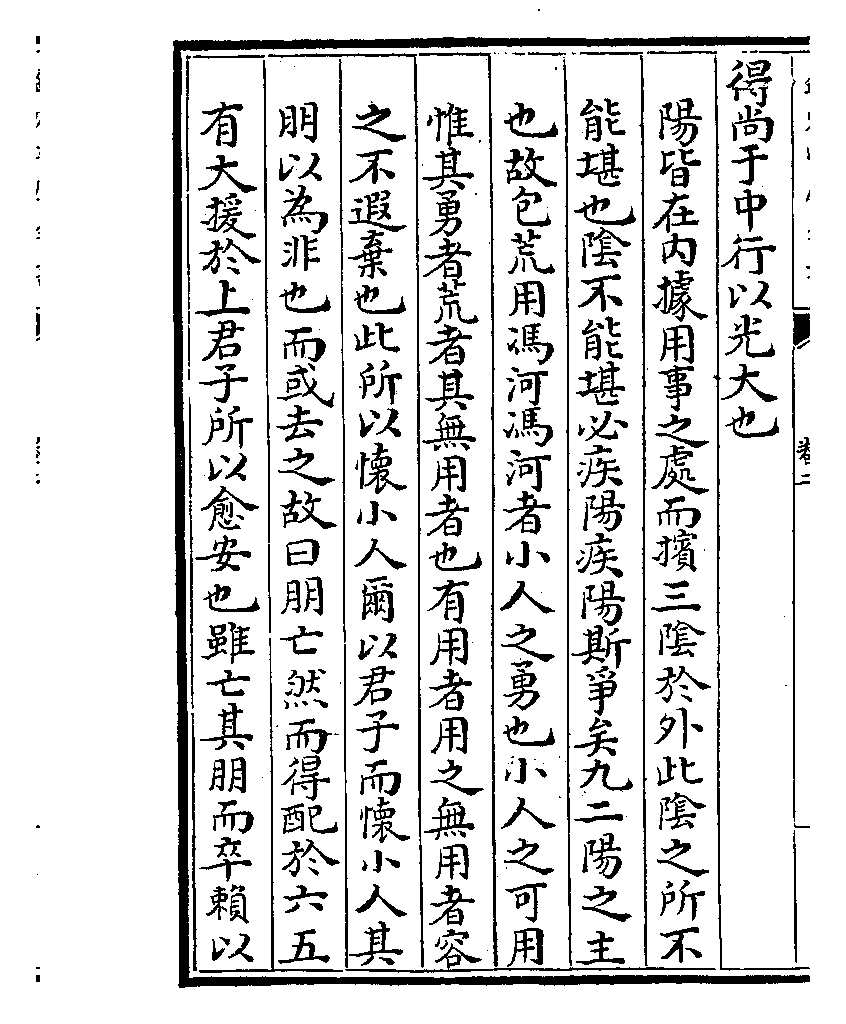 得尚于中行以光大也
陽皆在内據用事之處而擯三陰於外此陰之所不
能堪也陰不能堪必疾陽疾陽斯爭矣九二陽之主
也故包荒用馮河馮河者小人之勇也小人之可用
惟其勇者荒者其無用者也有用者用之無用者容
之不遐棄也此所以懷小人爾以君子而懷小人其
朋以為非也而或去之故曰朋亡然而得配於六五
有大援於上君子所以愈安也雖亡其朋而卒賴以
卷二